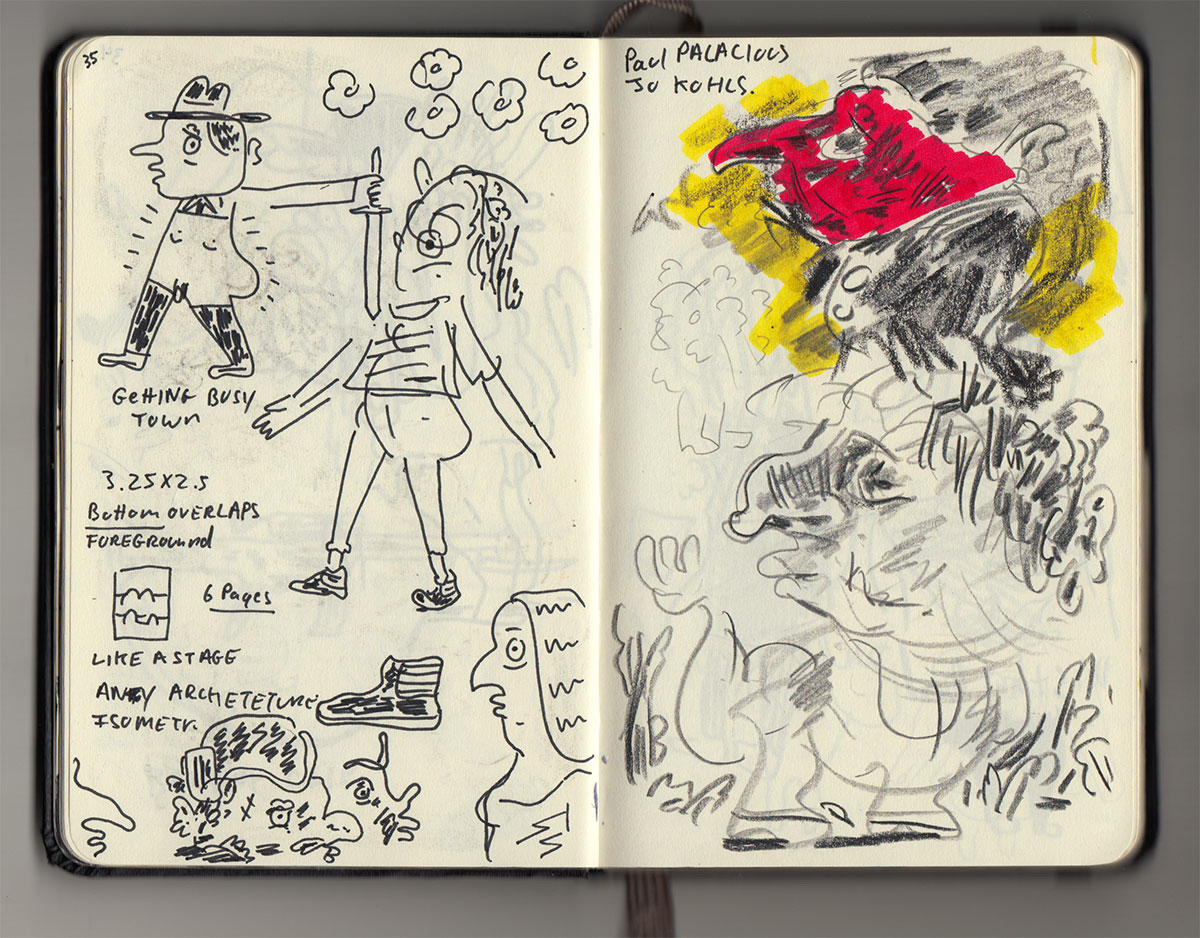 35
GettING BUSY
TOWN
3.25X2.5
Bottom OVERLAPS
FOREGROUND
6 Pages
LIKE A STAGE
ANY ARCHETETURE
ISOMETR.
Paul PALACIOUS
JO KOHLS.